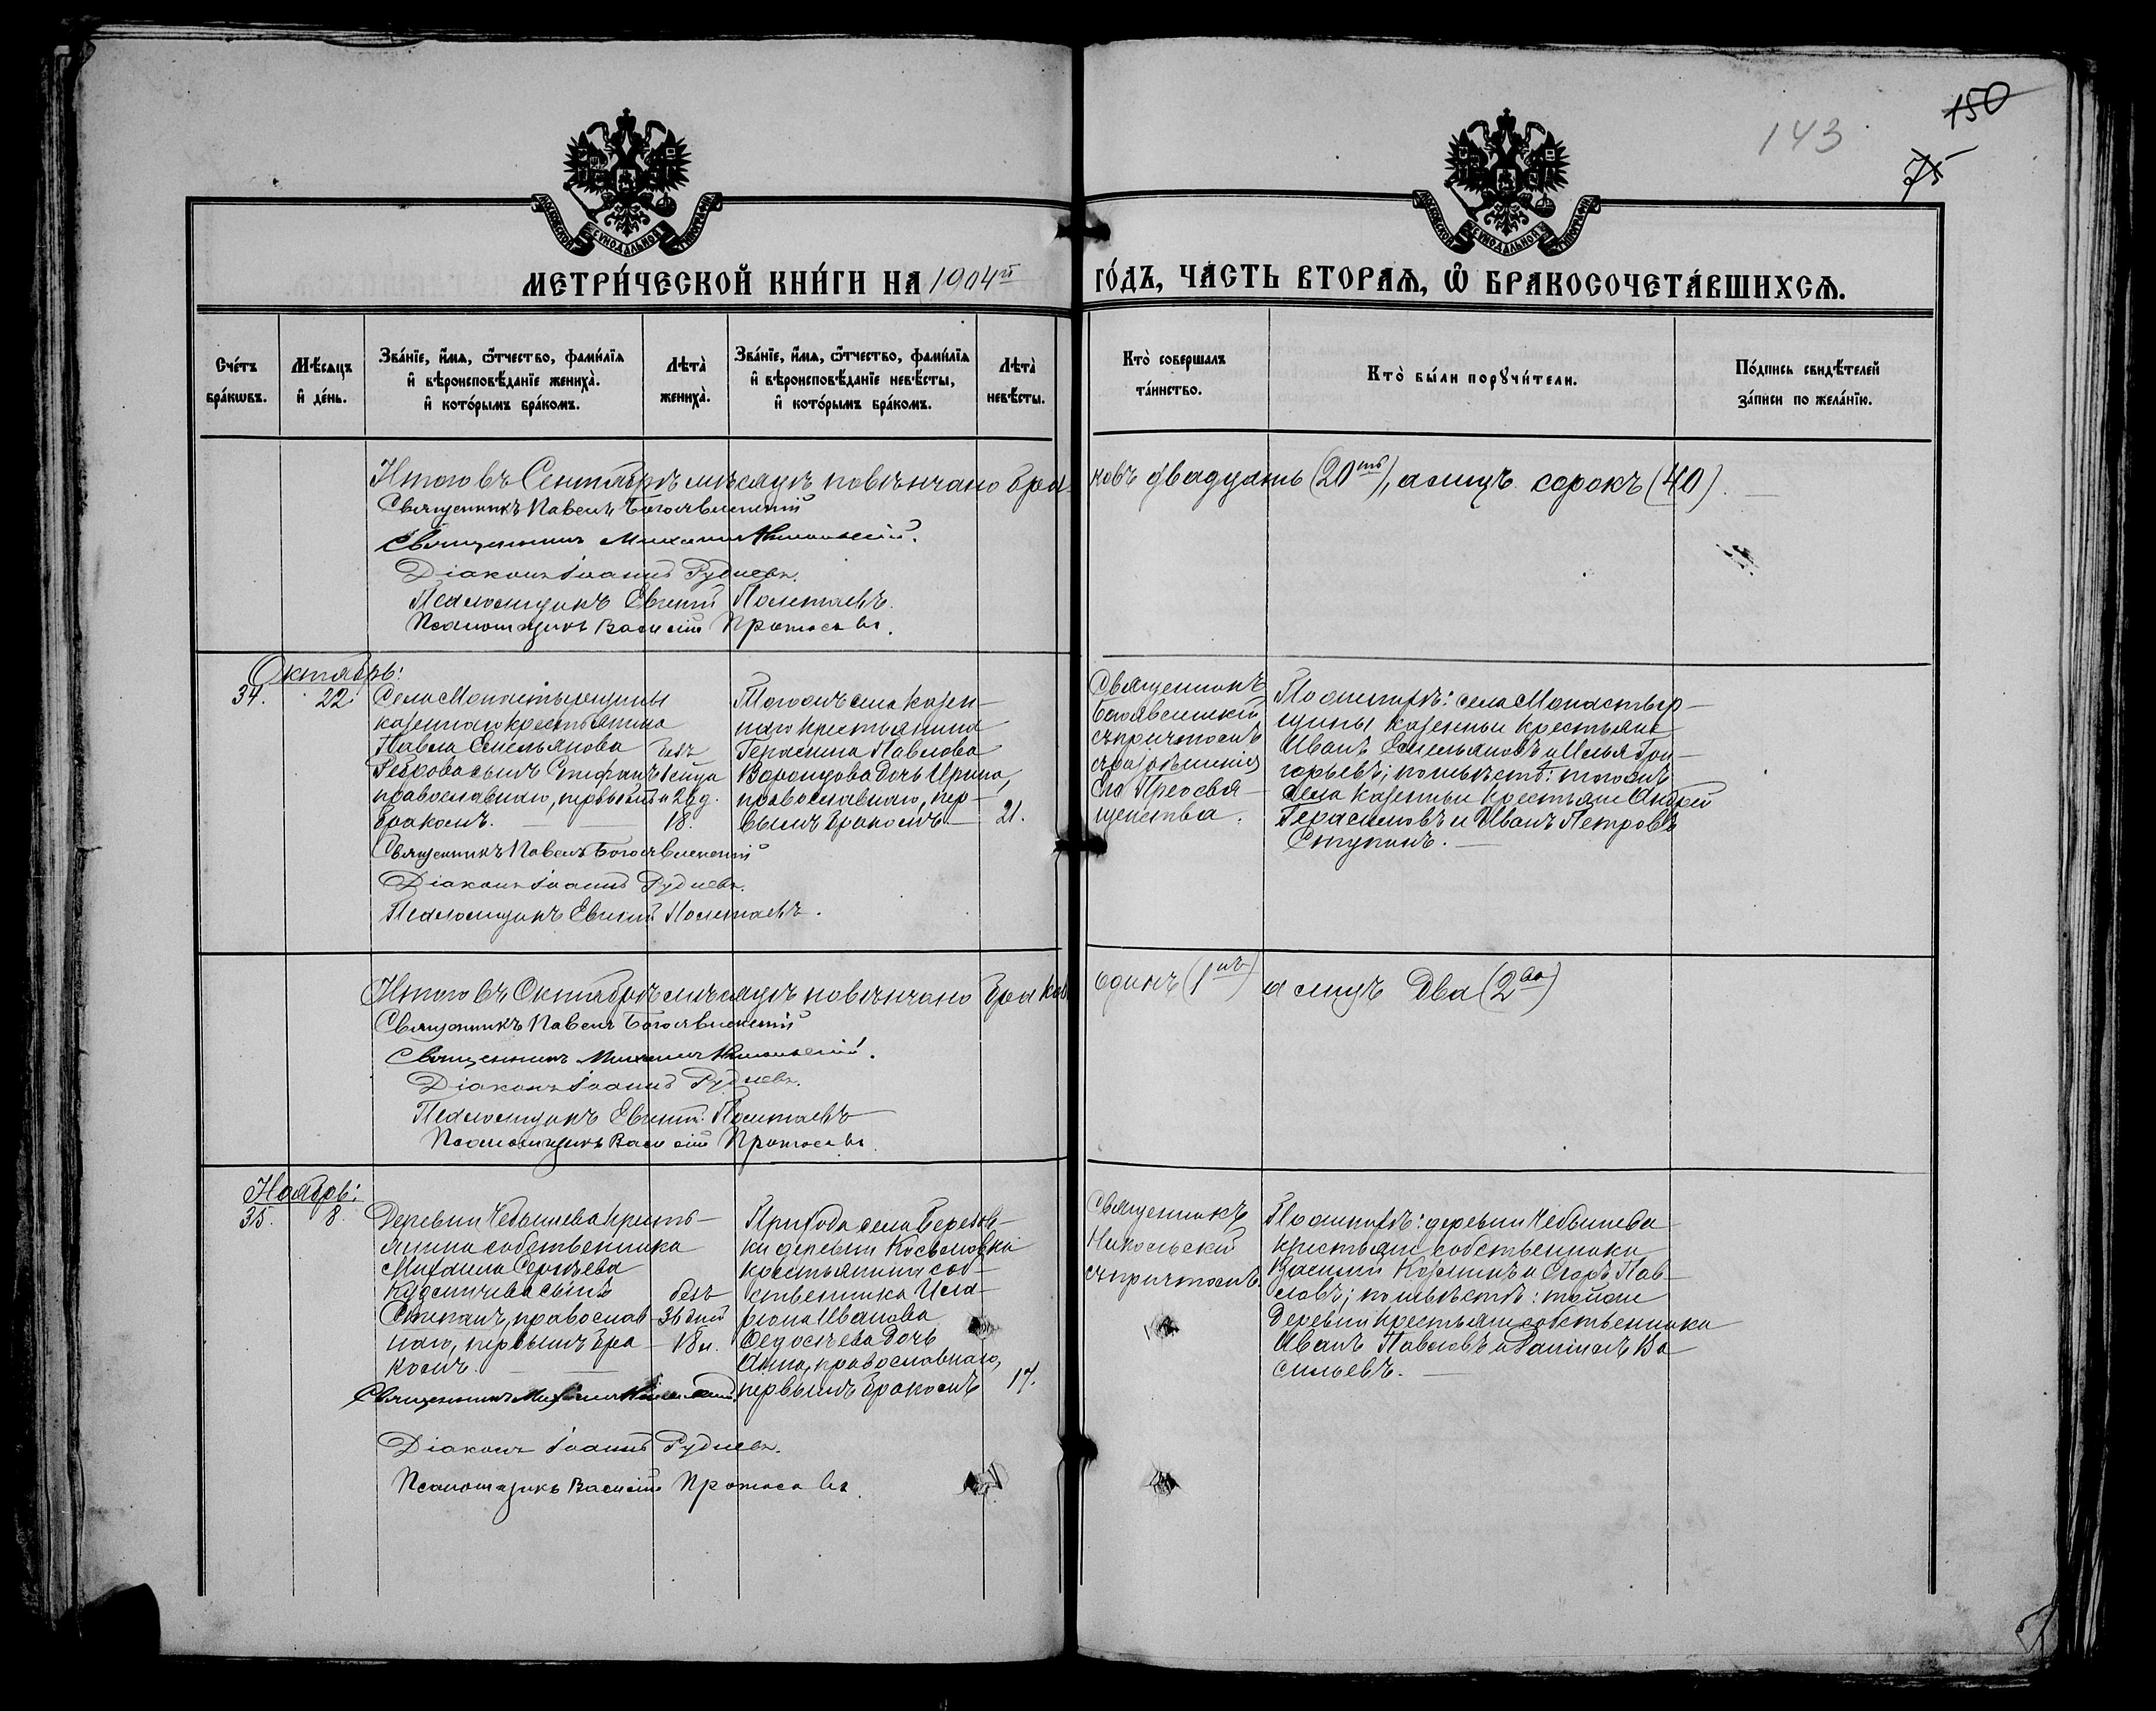 150
143
75
МОСКОВСКОЙ СѴНОДАЛЬНОЙ ТИПОГРАФІИ
МОСКОВСКОЙ СѴНОДАЛЬНОЙ ТИПОГРАФІИ
МЕТРИ́ЧЕСКОЙ КНИ́ГИ НА 1904й ГО́ДЪ, ЧАСТЬ ВТОРАѦ, Ѿ БРАКОСОЧЕТА́ВШИХСѦ.
Сче́тъ бра́кѡвъ.
Мѣ́сѧцъ и҆ де́нь.
Зва́нїе, и҆́мѧ, ѻ҆́тчество, фами́лїѧ
и҆ вѣроисповѣ́данїе жениха̀.
и҆ кото́рымъ бра́комъ.
Лѣта̀ жениха̀.
Зва́нїе, и҆́мѧ, ѻ҆́тчество, фами́лїѧ
и҆ вѣроисповѣ́данїе невѣ́сты,
и҆ кото́рымъ бра́комъ.
Лѣта̀ невѣ́сты.
Кто̀ соверша́лъ та́инство.
Кто̀ бы́ли порꙋчи́тели.
По́дпись свидѣ́телей за́писи по жела́нїю.
Итого въ Сентябрѣ мѣсяцѣ повѣнчано бра- ковъ двадцать (20ть), а лицъ сорокъ (40).
Священникъ Павелъ Богоявленскій
Священникъ Михаилъ Никольскій.
Діаконъ Іоаннъ Рудневъ.
Псаломщикъ Евгеній Полетаевъ.
Псаломщикъ Василій Протасовъ.
Октябрь:
34. 22.
Села Монастырщины
казеннаго крестьянина
Павла Емельянова
Реброва сынъ Епифанъ
православнаго, первымъ
бракомъ.
безъ
и 20 д.
18.
Тогожъ села казен-
наго крестьянина
Герасима Павлова
Воронцова дочь Ирина,
православнаго, пер-
вымъ бракомъ.
21.
Священникъ
Богоявленскій
съ причтомъ
Его Преосвя-
щенства.
По женихѣ: села Монастыр-
щины казенные крестьяне
Иванъ Емельяновъ и Илья Гри-
горьевъ; по невѣстѣ: тогожъ
села казенные крестьяне Андрей
Герасимовъ и Иванъ Петровъ
Ступинъ.
Священникъ Павелъ Богоявленскій
Діаконъ Іоаннъ Рудневъ.
Псаломщикъ Евгеній Полетаевъ.
Итого въ Октябрѣ мѣсяцѣ повѣнчано бракъ одинъ (1нъ) а лицъ два (2ва)
Священникъ Павелъ Богоявленскій
Священникъ Михаилъ Никольскій.
Діаконъ Іоаннъ Рудневъ.
Псаломщикъ Евгеній Полетаевъ
Псаломщикъ Василій Протасовъ.
Ноябрь:
35. 8.
Деревни Чебышева кресть-
янина собственника
Михаила Сергѣева
сынъ
Степанъ, православ-
наго, первымъ бра-
комъ.
безъ
36 дней
18 л.
Прихода села Березов-
ки деревни Козьмовки
крестьянина соб-
ственника Ила-
ріона Иванова
Ѳедосѣева дочь
Анна, православнаго,
первымъ бракомъ
17.
Священникъ
Никольскій
съ причтомъ.
По женихѣ: деревни Чебышева
крестьяне собственники
Василій Козминъ и Егоръ Пав-
ловъ; по невѣстѣ: тойже
деревни крестьяне собственники
Иванъ Павловъ и Даніилъ Ва
сильевъ.
Священникъ Михаилъ Никольскій
Діаконъ Іоаннъ Рудневъ.
Псаломщикъ Василій Протасовъ.